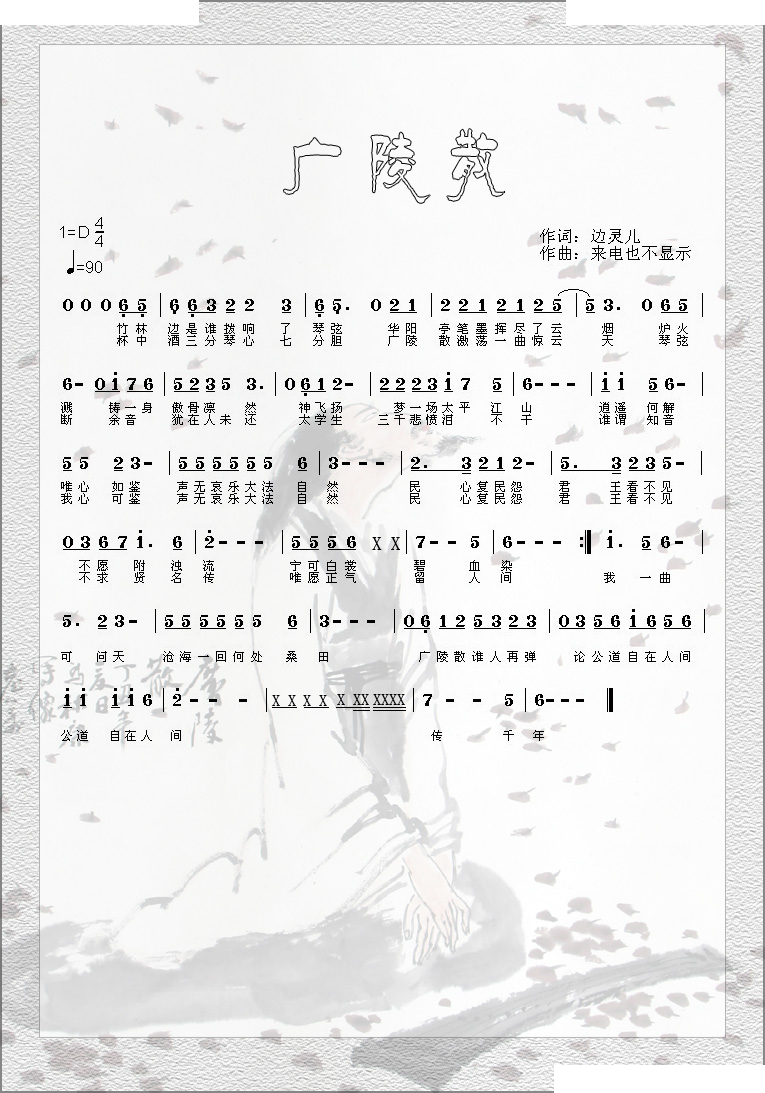 广陵散
1=D 4/4
♩=90
作词：边灵儿
作曲：来电也不显示
0 0 0 6 5 | 6 6 3 2 2 3 | 6 5. 0 2 1 | 2 2 1 2 1 2 5 | 5 3. 0 6 5 |
竹林 边是谁拨响 了 琴弦 华阳 亭笔墨挥尽了云 烟 炉火
杯中 酒三分琴心 七 分胆 广陵 散激荡一曲惊云 天 琴弦
6 - 0 1 7 6 | 5 2 3 5 3. | 0 6 1 2 - | 2 2 2 3 1 7 5 | 6 - - - | 1 1 5 6 - |
溅 铸一身 傲骨凛 然 神飞扬 梦一场太平 江 山 逍遥 何解
断 余音 犹在人未 还 太学生 三千悲愤泪 不 干 谁谓 知音
5 5 2 3 - | 5 5 5 5 5 5 6 | 3 - - - | 2. 3 2 1 2 - | 5. 3 2 3 5 - |
唯心 如鉴 声无哀乐大法 自 然 民 心复民怨 君 王看不见
我心 可鉴 声无哀乐大法 自 然 民 心复民怨 君 王看不见
0 3 6 7 1. 6 | 2 - - - | 5 5 5 6 X X | 7 - - 5 | 6 - - - :| 1. 5 6 - |
不愿 附 浊 流 宁可白裳 碧 血 染
不求 贤 名 传 唯愿正气 留 人 间 我 一曲
5. 2 3 - | 5 5 5 5 5 5 6 | 3 - - - | 0 6 1 2 5 3 2 3 | 0 3 5 6 1 6 5 6 |
可 问天 沧海一回何处 桑 田 广陵散谁人再弹 论公道自在人间
1 1 1 1 6 | 2 - - - | X X X X X XX XXXX | 7 - - 5 | 6 - - - |
公道 自在人 间 传 千 年